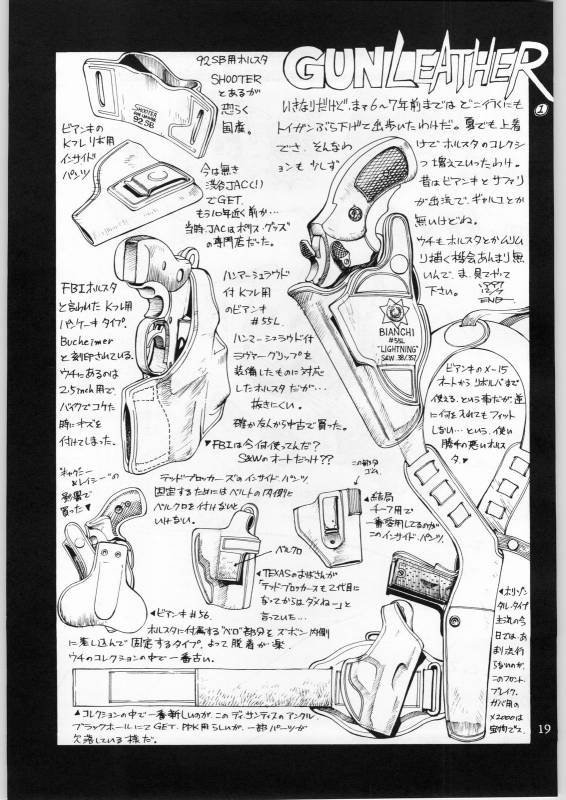 GUNLEATHER
1
いきなりだけど、まァ6〜7年前まではどこ行くにも
トイガンぶら下げて出歩いたわけだ。夏でも上着
けてホルスタのコレクシ
ョンも少しず
つ増えていったわけ。
昔はビアンキとサファリ
が主流で、ギャルコとか
無いけどね。
ウチもホルスタとかムリムリ
描く機会あんまり無
いんで、ま、見てやって
下さい。
92SB用ホルスタ
SHOOTER
とあるが
恐らく
国産。
SHOOTER
92 SB
ビアンキの
Kフレ リボ用
インサイド
パンツ
今は無き
渋谷JACC(!)
でGET.
もう10年近く前か…
当時、JACはポリス・グッズ
の専門店だった。
FBIホルスタ
と言われたKフレ用
パンケーキタイプ。
Bucheimer
と刻印されている。
ウチにあるのは
2.5inch用で
バイクでコケた
時にキズを
付けてしまった。
ハンマーシュラウド
付Kフレ用
のビアンキ
#55L.
ハンマーシュラウド付
グリップを
装備したものに対応
したホルスタだが…
抜きにくい。
確か友人から中古で買った。
♥FBIは今何使ってんだ?
S&Wのオートだっけ??
BIANCHI
#55L
"LIGHTNING"
S&W 38/357
ビアンキのX-15
オートからリボルバまで
使える、という事だが逆
に何を入れてもフィット
しない…という、使い
勝手の悪いホル
スタ.
"キャグニー
&レイシー"の
影響で
買った▼
テッドブロッカーズのインサイドパンツ
固定するためにはベルトの内側に
ベルクロを付けないと
いけない。
ベルクロ
この部分
ゴム。
◀結局
チーフ用で
一番愛用してるのが
このインサイドパンツ.
◀TEXASのおばさんが
「テッドブロッカーズも2代目に
なってからはダメねー」と
言っていた…
◀ビアンキ#56.
ホルスタに付属する"ベロ"部分をズボン内側
に差し込んで固定するタイプ。よって脱着が楽.
ウチのコレクションの中で一番古い。
◀ホリゾン
タルタイプ
主流の今
日では、あ
まり流行
らないのが、
このフロント
ブレイク。
ガバ用の
X2000は
▲コレクションの中で一番新しいのが、このディサンティスのアンクル
ブラックホールにてGET. PPK用らしいが、一部パーツが
欠落している様だ。
19